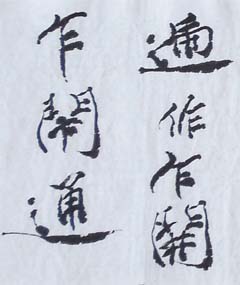 作乍開
乍開通